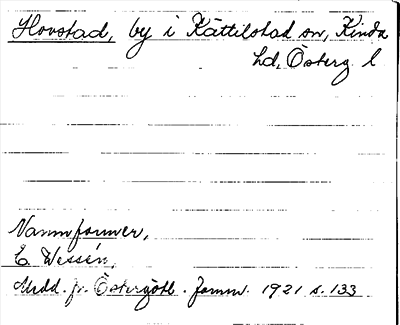 Hovstad, by i Kättilstad sn, Kinda
hd, Österg. l
Namnformer,
E. Wessén,
Medd. fr. Östergötl. fornm. 1921 s. 133